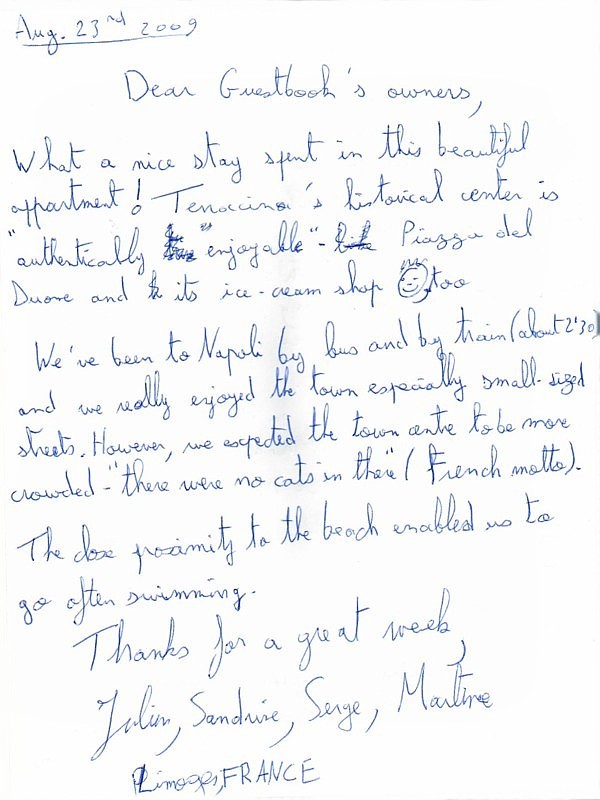 Aug. 23rd 2009
Dear Guestbook's owners,
What a nice stay spent in this beautiful
appartment! Terraccina's historical center is
"authentically enjoyable" - Piazza del
Duomo and its ice-cream shop too
We've been to Napoli by bus and by train (about 2'30
and we really enjoyed the town especially small-sized
streets. However, we expected the town centre to be more
crowded - "there were no cats in there" (French motto).
The close proximity to the beach enabled us to
go often swimming.
Thanks for a great week,
Julien, Sandrine, Serge, Martine
Limoges, FRANCE